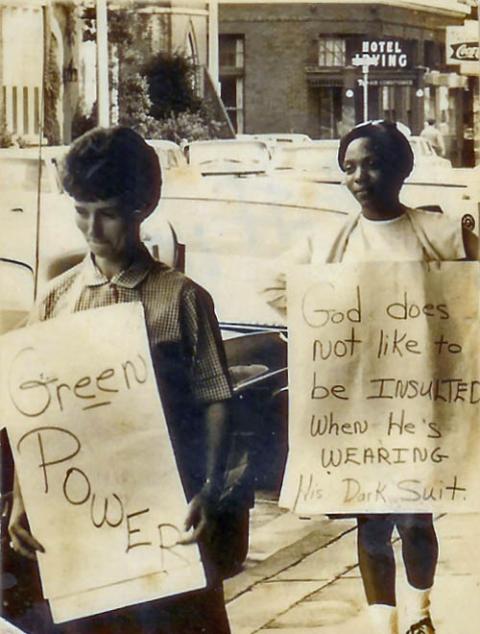 HOTEL
IRVING
Green
POWER
God does
not like to
be INSULTED
when He's
WEARING
His Dark Suit.